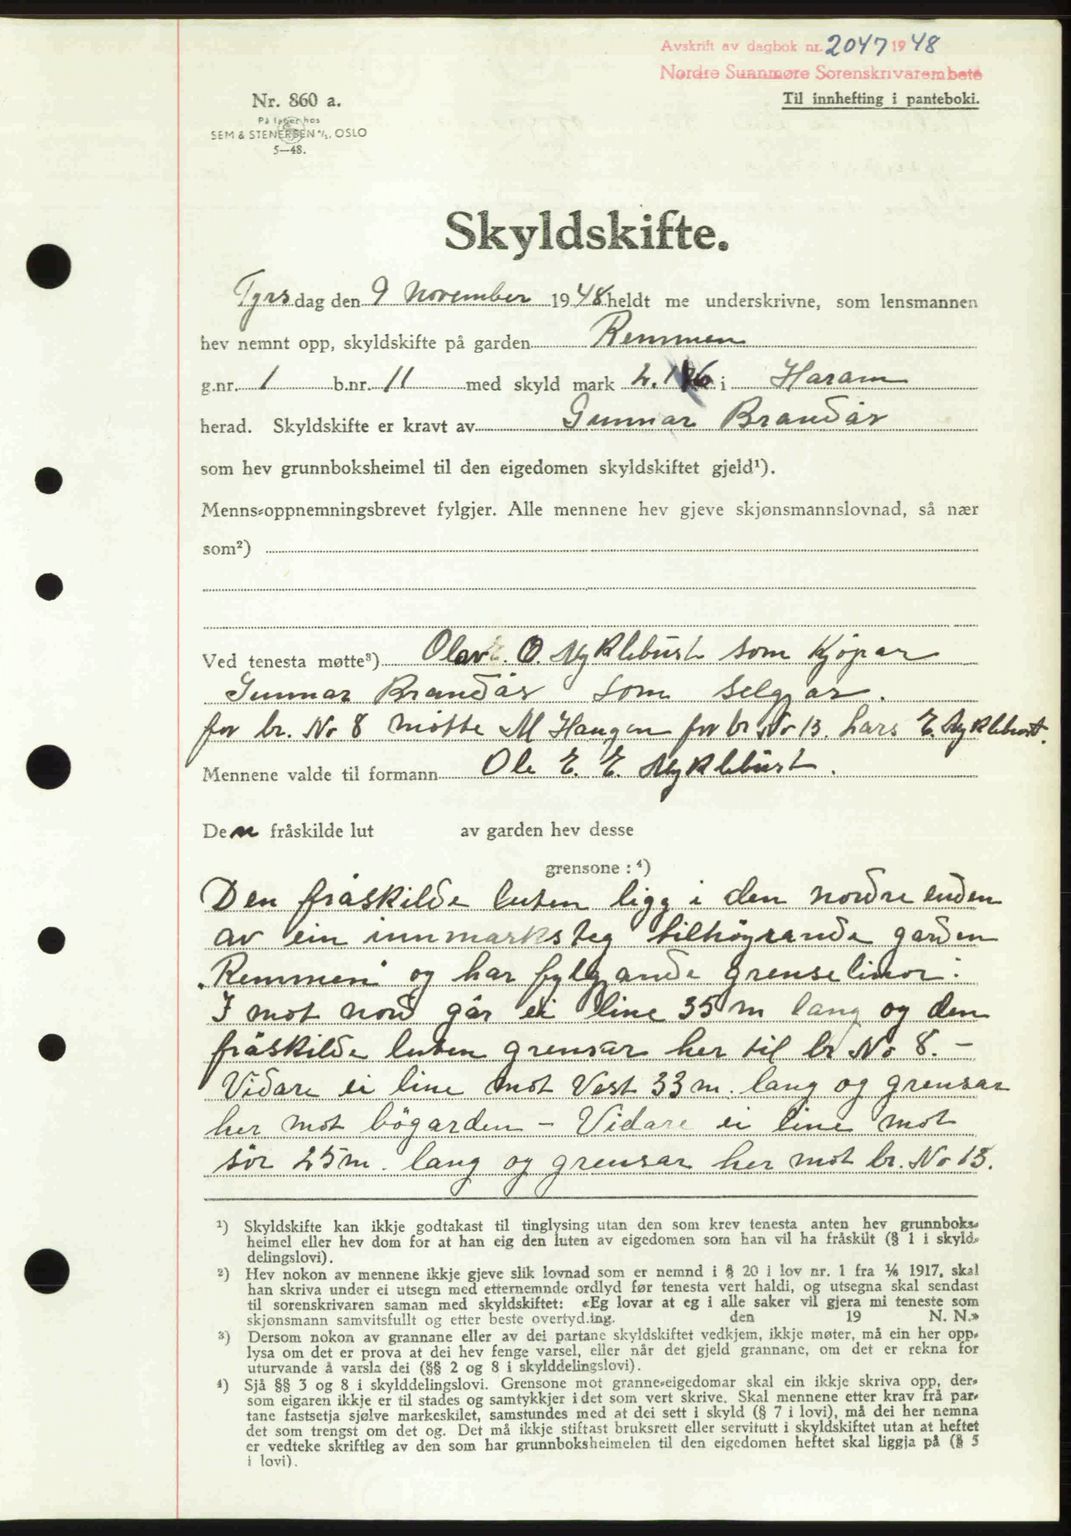 Avskrift av dagbok nr. 2047 1948
Nordre Sunnmøre Sorenskrivarembete
Til innhefting i panteboki.
Nr. 860 a.
På lager hos
SEM & STENERSEN A/S, OSLO
5—48.
Skyldskifte.
Tyrsdag den 9 November 1948 heldt me underskrivne, som lensmannen
hev nemnt opp, skyldskifte på garden Remmen
g.nr. 1 b.nr. 11 med skyld mark i Haram
herad. Skyldskifte er kravt av Gunnar Brandås
som hev grunnboksheimel til den eigedomen skyldskiftet gjeld¹).
Menns-oppnemningsbrevet fylgjer. Alle mennene hev gjeve skjønsmannslovnad, så nær
som²)
Ved tenesta møtte³) Olav O. Myklebust som kjöpar
Gunnar Brandås som selgjar.
for br. No 8 møtte M Haugen for br No 13. Lars E. Myklebust.
Mennene valde til formann Ole E. E. Myklebust.
Den fråskilde lut av garden hev desse
grensone : ⁴)
Den fråskilde luten ligg i den nordre enden
av ein innmarksteg tilhöyrande garden
„Remmen" og har fylgjande grenselinor:
I mot nord går ei line 35 m lang og den
fråskilde luten grensar her til br No 8. —
Vidare ei line mot Vest 33 m. lang og grensar
her mot bögarden — Vidare ei line mot
sör 25 m. lang og grensar her mot br. No 13.
¹) Skyldskifte kan ikkje godtakast til tinglysing utan den som krev tenesta anten hev grunnboks-
heimel eller hev dom for at han eig den luten av eigedomen som han vil ha fråskilt (§ 1 i skyld-
delingslovi).
²) Hev nokon av mennene ikkje gjeve slik lovnad som er nemnd i § 20 i lov nr. 1 fra 1/6 1917, skal
han skriva under ei utsegn med etternemnde ordlyd før tenesta vert haldi, og utsegna skal sendast
til sorenskrivaren saman med skyldskiftet: «Eg lovar at eg i alle saker vil gjera mi teneste som
skjønsmann samvitsfullt og etter beste overtyd.ing. den 19 N. N.»
³) Dersom nokon av grannane eller av dei partane skyldskiftet vedkjem, ikkje møter, må ein her opp-
lysa om det er prova at dei hev fenge varsel, eller når det gjeld grannane, om det er rekna for
uturvande å varsla dei (§§ 2 og 8 i skylddelingslovi).
⁴) Sjå §§ 3 og 8 i skylddelingslovi. Grensone mot granne-eigedomar skal ein ikkje skriva opp, der-
som eigaren ikkje er til stades og samtykkjer i det som vert skrive. Skal mennene etter krav frå par-
tane fastsetja sjølve markeskilet, samstundes med at dei sett i skyld (§ 7 i lovi), må dei her nemna
det som trengst om det og. Det må ikkje stiftast bruksrett eller servitutt i skyldskiftet utan at heftet
er vedteke skriftleg av den som har grunnboksheimelen til den eigedomen heftet skal liggja på (§ 5
i lovi).